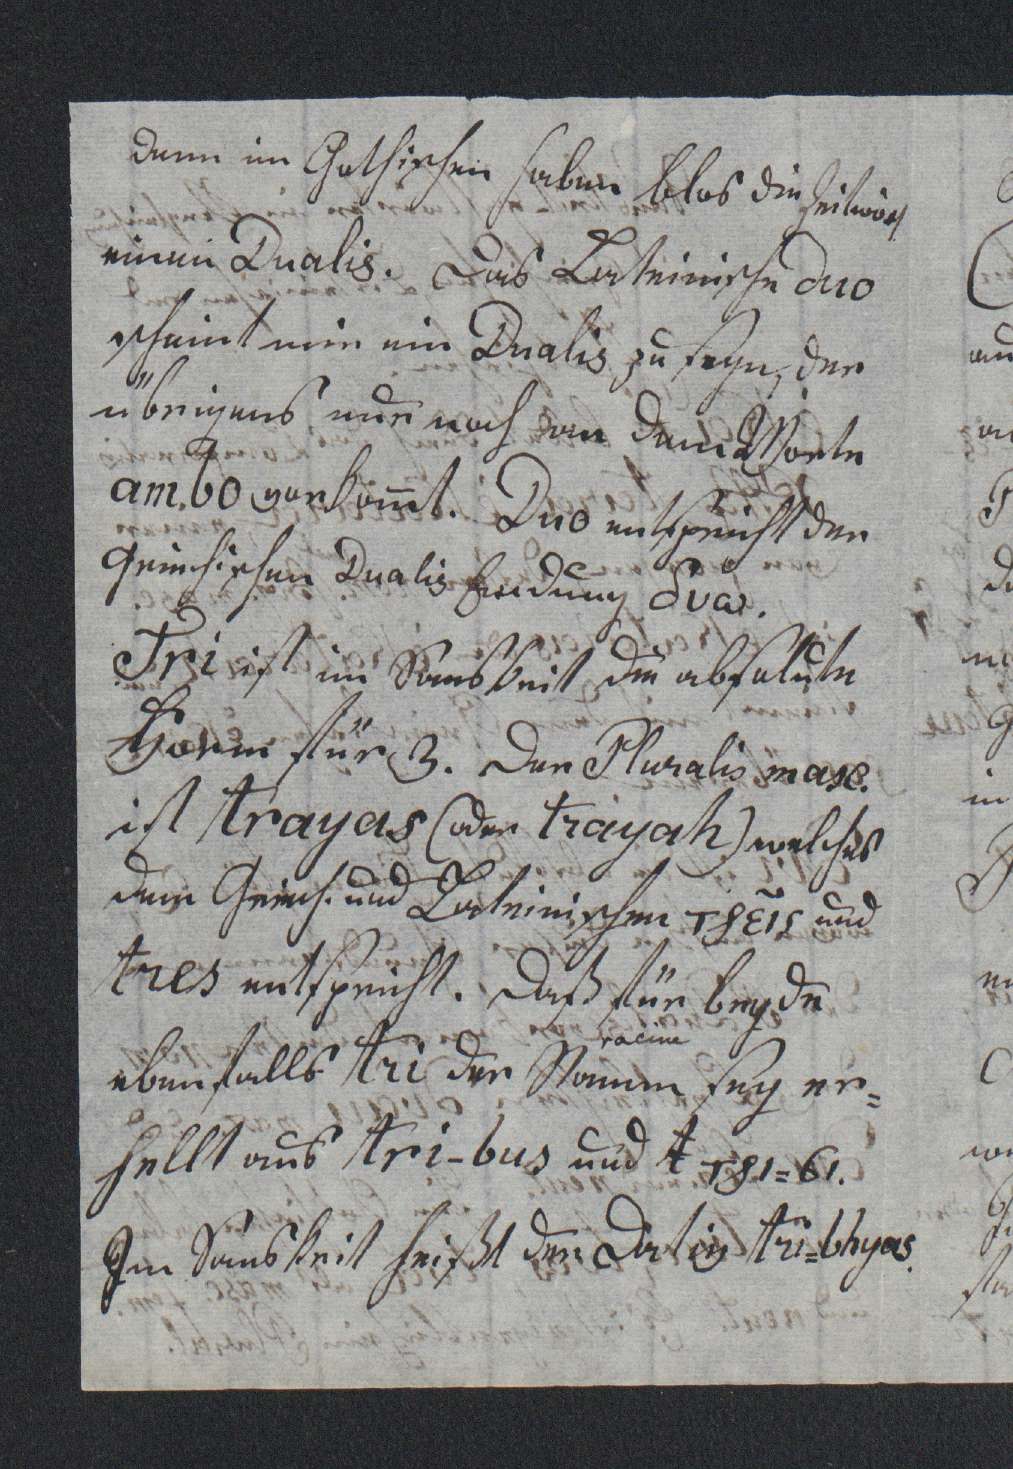 denn im Gothischen haben blos die Zeitwört
einen Dualis. Das Lateinische duo
scheint mir ein Dualis zu seyn, der
übrigens nur noch an dem Worte
ambo vorkom̄t. Duo entspricht der
Griechischen Dualis Endung δύω.
Tri ist im Sanskrit die absolute
Form für 3. Der Pluralis masc.
ist trayas (oder trayah) welches
dem Griech. und Lateinischen τρεῖς und
tres entspricht. Daß für beyde
racine
ebenfalls tri der Stamm sey er=
hellt aus tri-bus und τρι=σι.
Im Sanskrit heißt der Dativ tri=bhyas.